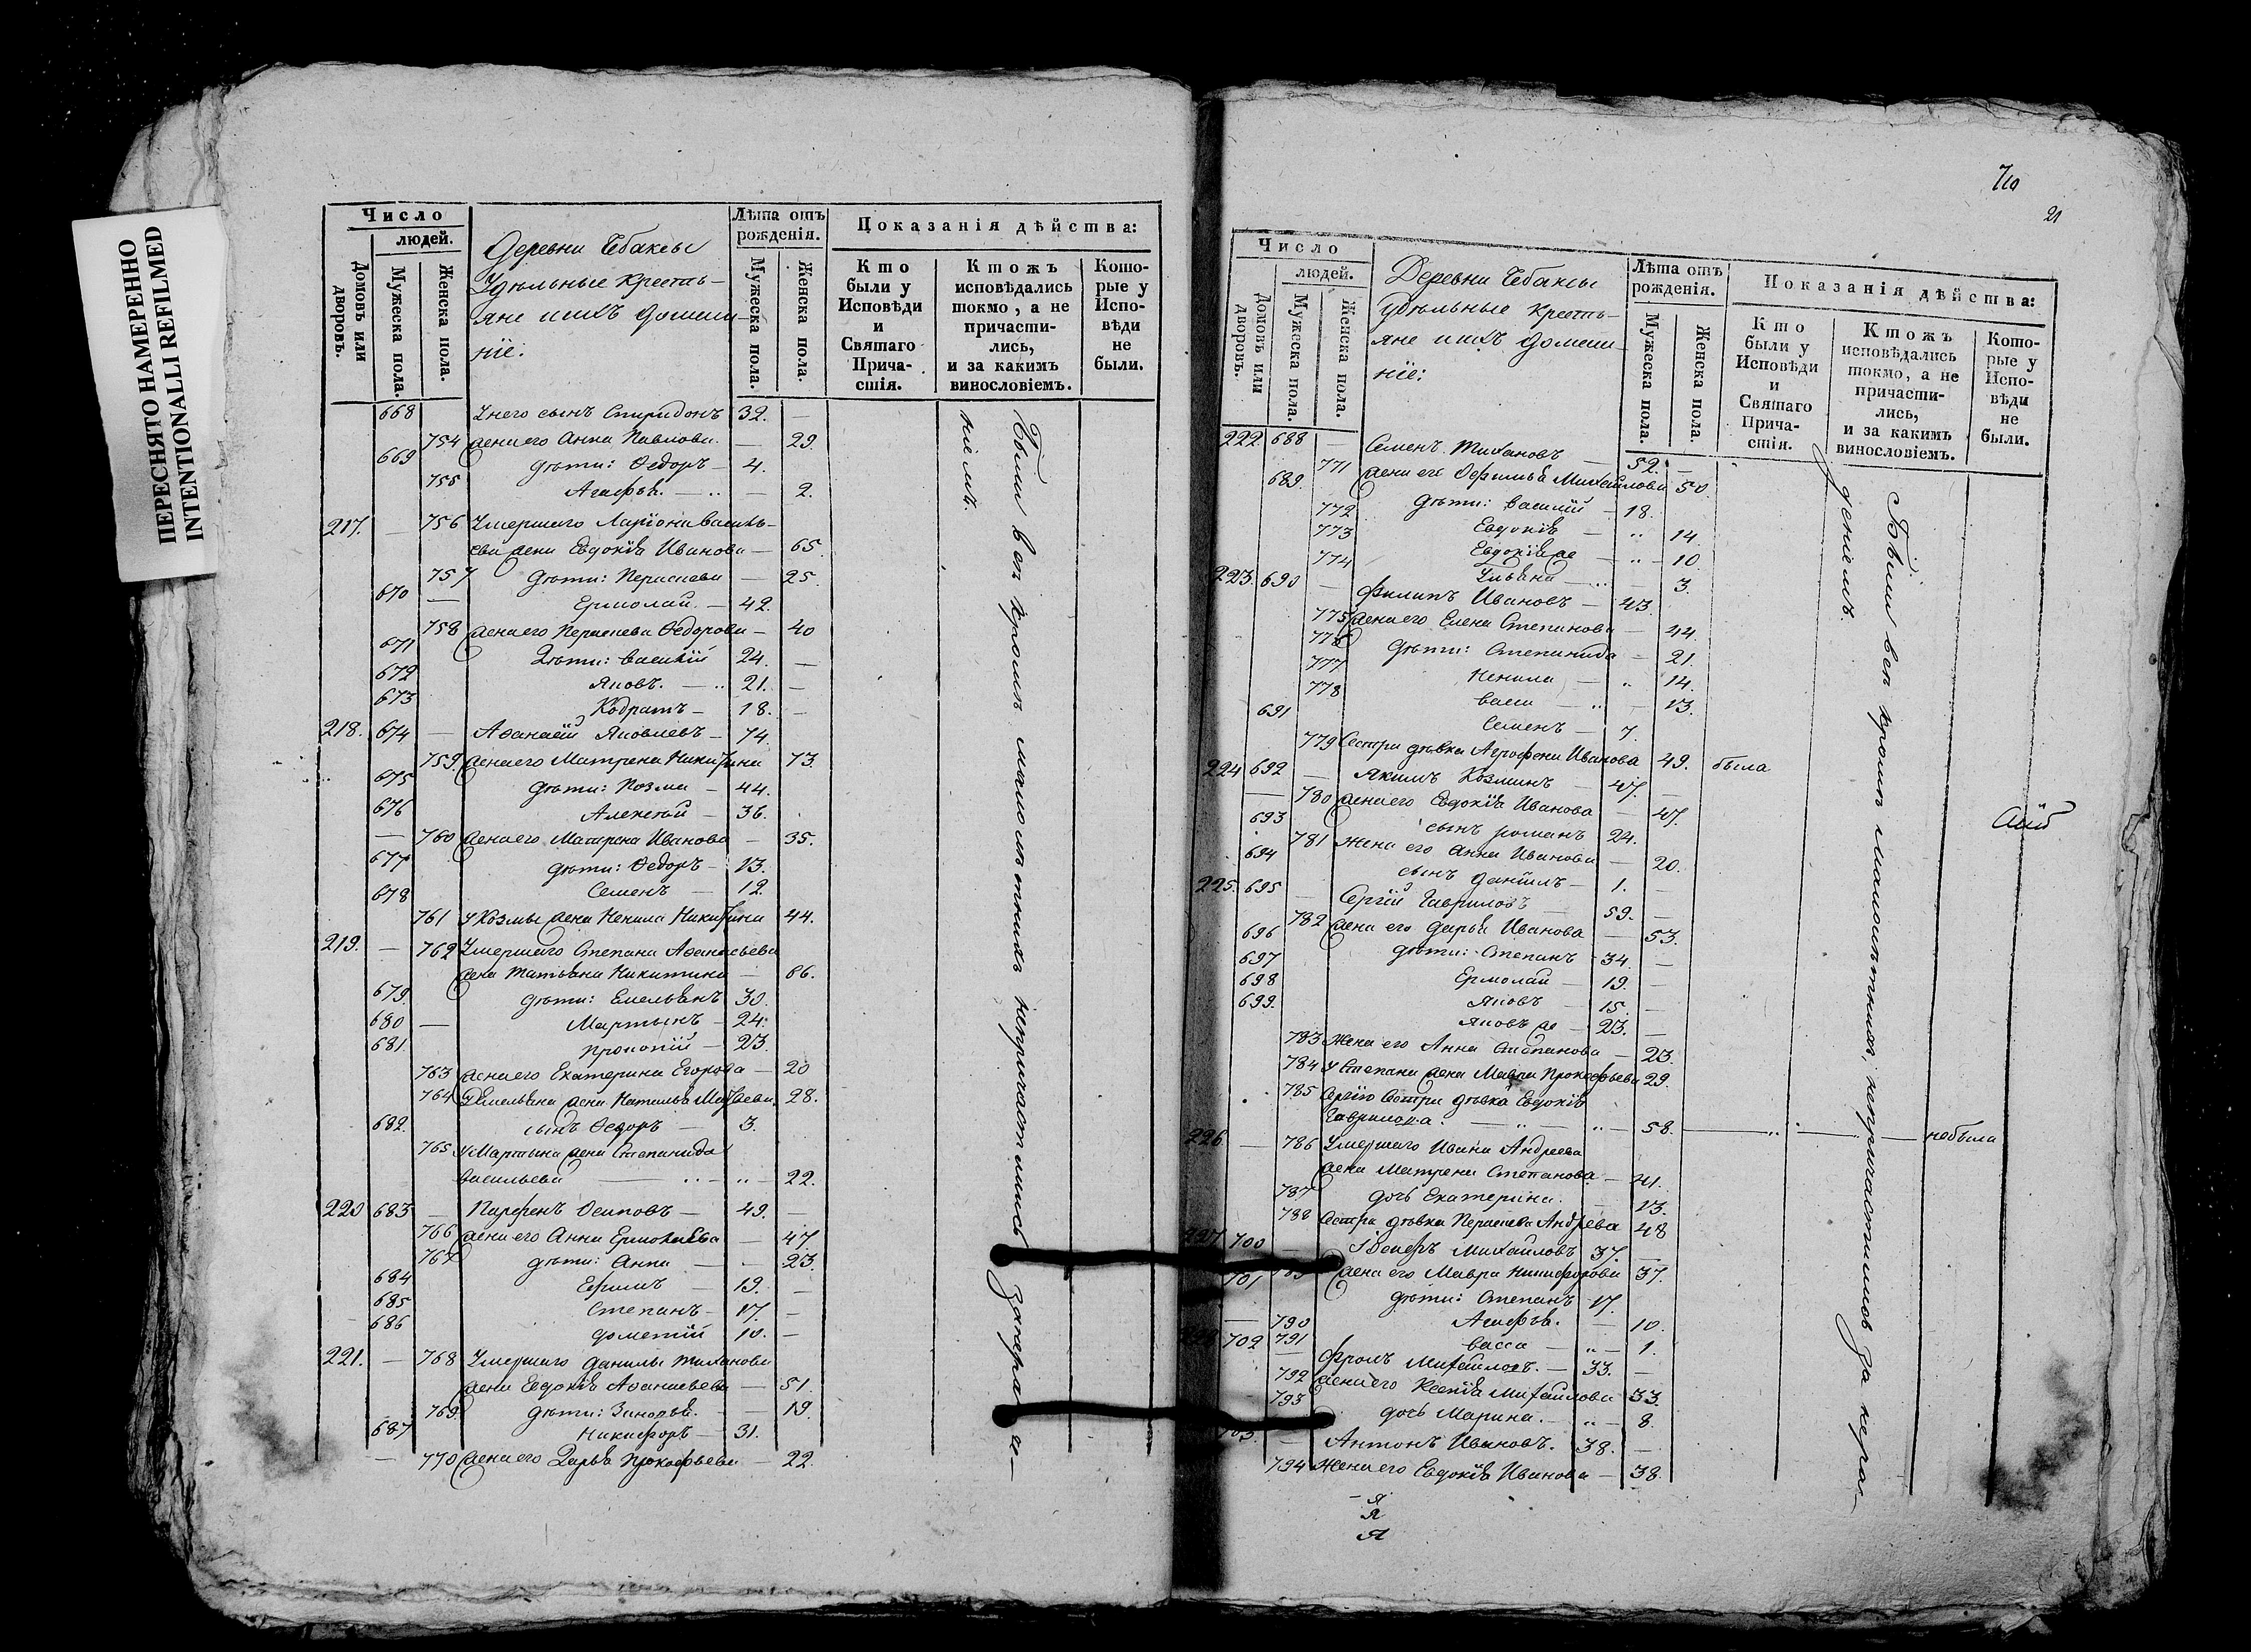 ПЕРЕСНЯТО НАМЕРЕННО
INTENTIONALLI REFILMED
Число
людей.
Домовъ или дворовъ.
Мужеска пола.
Женска пола.
Деревни Чебаксы
Удѣльные кресть-
яне ихъ домаш-
ніе:
Лѣта отъ рожденія.
Мужеска пола.
Женска пола.
Показанія дѣйства:
Кто были у Исповѣди и Святаго Прича-стія.
Ктожъ исповѣдались токмо, а не причасти-лись, и за какимъ винословіемъ.
Кото-рые у Испо-вѣди не были.
668 У него сынъ Спиридонъ 32. —
754 жена его Анна Павлова. — 29.
669 дѣти: Ѳедоръ — 4.
755 Агафья. — 2.
217. — 756 Умершаго Ларіона Василь-
ева жена Евдокія Иванова — 65.
757 дѣти: Параскева — 25.
670 — Ермолай. — 42.
758 жена его Параскева Ѳедорова — 40
671 Дѣти: Василій 24. —
672 Яковъ. — 21. —
673 Кодратъ — 18. —
218. 674 — Аѳанасій Яковлевъ — 74.
759. жена его Матрена Никитина 73.
675 дѣти: Козма — 44.
676 Алексѣй — 36.
— 760 жена его Матрена Иванова — 35.
677 дѣти: Ѳедоръ — 13.
678 Семенъ — 12.
761 у Козмы жена Ненила Никитина 44.
219. — 762 Умершаго Степана Аѳанасьева
жена Татьяна Никитина — 66.
679. дѣти: Емельянъ 30.
680 — Мартынъ — 24.
681. Прокопій — 23.
763 жена его Екатерина Егорова — 20
764 У Емельяна жена Наталья Матвеева. 28.
682. сынъ Ѳедоръ — 3.
765 у Мартына жена Степанида
Васильева — 22.
220 683 — Парфенъ Осиповъ — 49. —
766 жена его Анна Ермолаева — 47.
767 дѣти: Анна — 23.
684 Ефимъ — 19. —
685 Степанъ — 17. —
686 Дометій 10. —
221. — 768 Умершаго Данилы Тиханова
жена Евдокія Аѳанасьева — 51.
769. дѣти: Зиновья. — 19.
687 Никифоръ — 31.
— 770 жена его Дарья Прокофьева — 22.
Были всѣ кромѣ малолѣтнихъ непричастились за нераде-
ніемъ.
21
Число
людей.
Домовъ или дворовъ.
Мужеска пола.
Женска пола.
Деревни Чебаксы
удѣльные кресть-
яне ихъ домаш-
ніе:
Лѣта отъ рожденія.
Мужеска пола.
Женска пола.
Показанія дѣйства:
Кто были у Исповѣди и Святаго Прича-стія.
Ктожъ исповѣдались токмо, а не причасти-лись, и за какимъ винословіемъ.
Кото-рые у Испо-вѣди не были.
222. 688 — Семенъ Тихановъ — 52. —
771 жена его Михайлова 50.
689. дѣти: Василій — 18.
772 Евдокія — 14.
773 Евдокія же — 10.
774 Ульяна — 3.
223. 690 — Филипъ Ивановъ — 43.
775 жена его Елена Степанова — 44.
776 дѣти: Степанида — 21.
777 Ненила — 14.
778 Васса — 13.
691 Семенъ — 7.
779 Сестра дѣвка Агрофена Иванова 49. была
224 692 — Якимъ Козминъ — 47. —
— 780 жена его Евдокія Иванова — 47.
693 сынъ Романъ 24.
781 Жена его Анна Иванова — 20.
694 сынъ Данилъ — 1. —
225. 695 — Сергій Гавриловъ — 59. —
782 жена его Дарья Иванова — 53.
696 дѣти: Степанъ — 34. —
697 Ермолай — 19. —
698 Яковъ — 15. —
699. Яковъ же — 23. —
783 Жена его Анна Степанова — 23.
784 У Степана жена Мавра Прокофьева 29.
785 Сергія сестра дѣвка Евдокія
Гаврилова. — 58. — небыла
226. — 786 Умершаго Ивана Андреева
жена Матрена Степанова — 41.
787 дочь Екатерина. — 13.
788 Сестра дѣвка Параскева Андреева 48
227 700 — Іосифъ Михайловъ 37. —
жена его Мавра Никифорова 37.
701 дѣти: Степанъ 17.
790 Агафья. — 10.
791 Васса — 1.
702 Фролъ Михайловъ. — 33. —
792 жена его Ксенія Михайлова 33.
793 дочь Марина. — 8.
703. — Антонъ Ивановъ. 38. —
794 Жена его Евдокія Иванова — 38.
Были всѣ кромѣ малолѣтнихъ, непричастились за нера-
деніемъ.